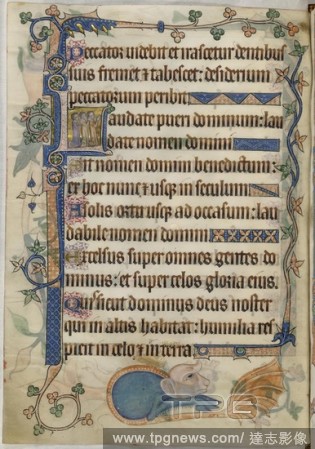 Peccator videbit et irascetur dentibus
suis fremet & tabescet: desiderium
peccatorum peribit.
Laudate pueri dominum: lau
date nomen domini
Sit nomen domini benedictum:
ex hoc nunc & usq; in seculum
A solis ortu usq; ad occasum: lau
dabile nomen domini
Excelsus super omnes gentes do
minus: et super celos gloria eius.
Quis sicut dominus deus noster
qui in altis habitat: humilia res
picit in celo & in terra.
TPG
www.tpgnews.com/ 達志影像